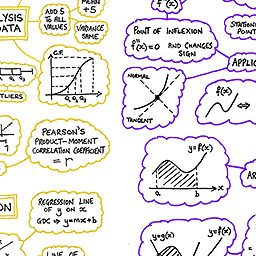 LYSIS
DATA
ADD 5
TO ALL
VALUES
MEAN
+5
VARIANCE
SAME
C.F.
Q₁ Q₂ Q₃
TLIERS
PEARSON'S
PRODUCT-MOMENT
CORRELATION COEFFICIENT
= r
ON
REGRESSION LINE
OF y ON x
GDC ⇒ y=mx+b
LINE OF
f''(x)
POINT OF INFLEXION
f''(x)=0 AND CHANGES
SIGN
STATION
POINT
APPLIC
NORMAL
TANGENT
f(x)
⇔
y=f(x)
a b x
AR
y=g(x) y=f(x)